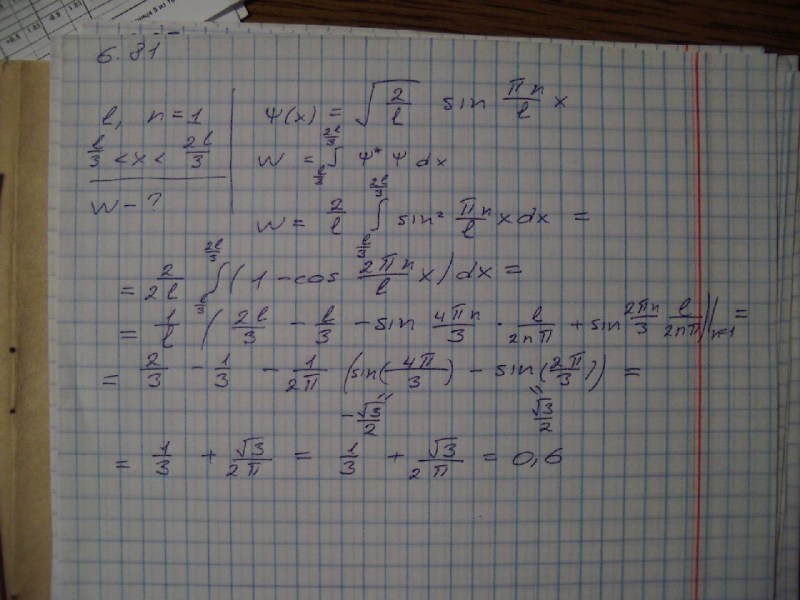 6.81
l, n = 1
l/3 < x < 2l/3
W - ?
Ψ(x) = √(2/l) sin (πn/l) x
W = ∫_{l/3}^{2l/3} Ψ* Ψ dx
W = 2/l ∫_{l/3}^{2l/3} sin² (πn/l) x dx =
= 2/2l ∫_{l/3}^{2l/3} (1 - cos (2πn/l) x) dx =
= 1/l (2l/3 - l/3 - sin 4πn/3 · l/2nπ + sin 2πn/3 l/2nπ)|_{n=1} =
= 2/3 - 1/3 - 1/2π (sin(4π/3) - sin(2π/3)) =
-√3/2 √3/2
= 1/3 + √3/2π = 1/3 + √3/2π = 0,6